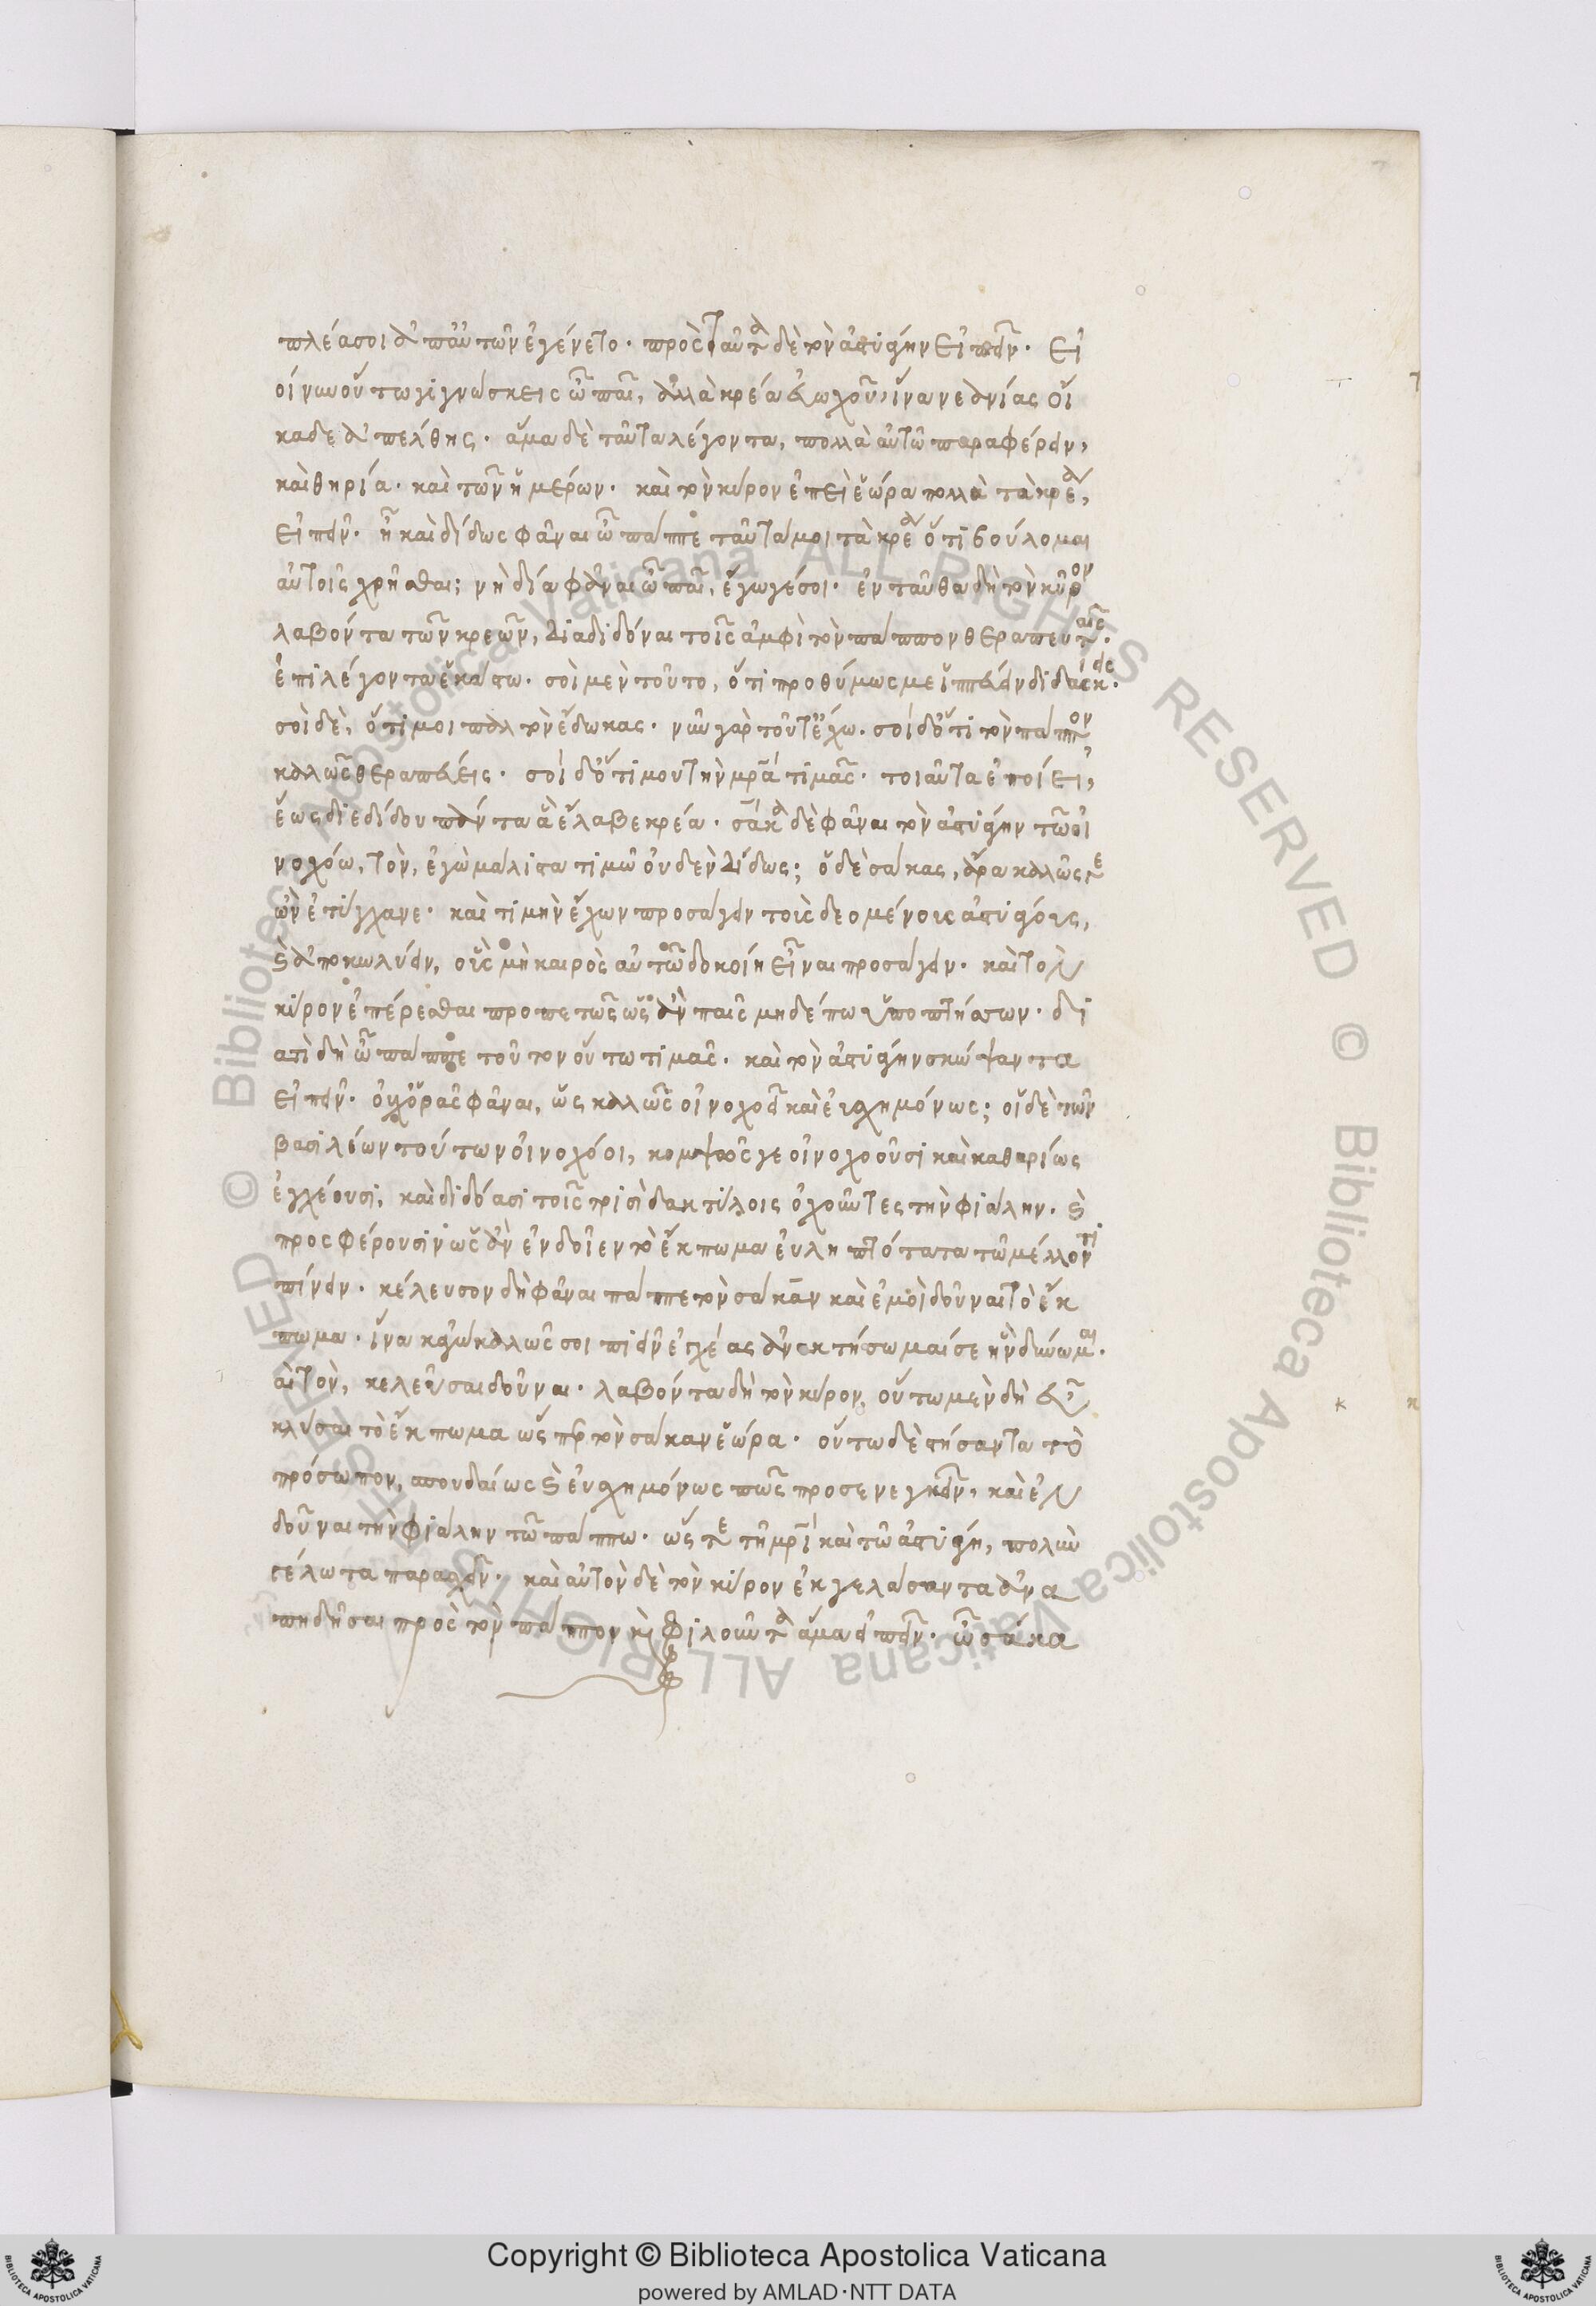 πλέα σοι ἀπ' αὐτῶν ἐγένετο. πρὸς ταῦτα δὲ τὸν ἀστυάγην εἰπεῖν. εἰ
οὖν οὕτω γιγνώσκεις ὦ παῖ, ἀλλὰ κρέα εὐωχοῦ, ἵνα νεανίας οἴ
καδε ἀπέλθης. ἅμα δὲ ταῦτα λέγοντα, πολλὰ αὐτῶ παραφέρειν,
καὶ θηρία. καὶ τῶν ἡμέρων. καὶ τὸν κῦρον ἐπεὶ ἑώρα πολλὰ τὰ κρέα,
εἰπεῖν. ἦ καὶ δίδως φᾶναι ὦ πάππε ταῦτά μοι τὰ κρέα ὅτι βούλομαι
αὐτοῖς χρῆσθαι; νὴ δία φᾶναι ὦ παῖ, ἔγωγέ σοι. ἐνταῦθα δὴ τὸν κῦρον
λαβόντα τῶν κρεῶν, διαδιδόναι τοῖς ἀμφὶ τὸν πάππον θεραπευταῖς.
ἐπιλέγοντα ἑκάστω. σοὶ μὲν τοῦτο, ὅτι προθύμως με ἱππεύειν διδάσκεις.
σοὶ δὲ, ὅτι μοι παλτὸν ἔδωκας. νῦν γὰρ τοῦτ' ἔχω. σοὶ δ' ὅτι τὸν πάππον
καλῶς θεραπεύεις. σοὶ δ' ὅτι μου τὴν μρα τιμᾶς. τοιαῦτα ἐποίει,
ἕως διεδίδου πάντα ἃ ἔλαβε κρέα. σάκα δὲ φᾶναι τὸν ἀστυάγην τῶ οἰ
νοχόω, ὃν, ἐγὼ μάλιστα τιμῶ οὐδὲν δίδως; ὁ δὲ σάκας, ἄρα καλῶς τε
ὢν ἐτύγχανε. καὶ τιμὴν ἔχων προσάγειν τοὺς δεομένους ἀστυάγους,
καὶ ἀποκωλύειν, οὓς μὴ καιρὸς αὐτῶ δοκοίη εἶναι προσάγειν. καὶ τὸν
κῦρον ἐπέρεσθαι προπετῶς ὡς ἂν παῖς μηδέπω ὑποπτήσσων. δι
ατί δὴ ὦ πάππε τοῦτον οὕτω τιμᾶς. καὶ τὸν ἀστυάγην σκώψαντα
εἰπεῖν. οὐχ ὁρᾶς φᾶναι, ὡς καλῶς οἰνοχοεῖ καὶ εὐσχημόνως; οἱ δὲ τῶν
βασιλέων τούτων οἰνοχόοι, κομψῶς γε οἰνοχοοῦσι καὶ καθαρίως
ἐγχέουσι, καὶ διδόασι τοῖς τρισὶ δακτύλοις ὀχοῦντες τὴν φιάλην. καὶ
προσφέρουσιν ὡς ἂν ἐνδοῖεν τὸ ἔκπωμα εὐληπτότατα τῶ μέλλοντι
πίνειν. κέλευσον δὴ φᾶναι πάππε τὸν σάκαν καὶ ἐμοὶ δοῦναι τὸ ἔκ
πωμα. ἵνα κἀγὼ καλῶς σοι πιεῖν ἐγχέας ἀνακτήσωμαί σε ἢν δύνωμαι.
αὐτὸν, κελεῦσαι δοῦναι. λαβόντα δὴ τὸν κῦρον, οὕτω μὲν δὴ εὖ
κλύσαι τὸ ἔκπωμα ὥσπερ τὸν σάκαν ἑώρα. οὕτω δὲ στήσαντα τὸ
πρόσωπον, σπουδαίως καὶ εὐσχημόνως πως προσενεγκεῖν, καὶ ἐν
δοῦναι τὴν φιάλην τῶ πάππω. ὥστε τῆ μρι καὶ τῶ ἀστυάγη, πολὺν
γέλωτα παρασχεῖν. καὶ αὐτὸν δὲ τὸν κῦρον ἐκγελάσαντα ἀνα
πηδῆσαι πρὸς τὸν πάππον καὶ φιλοῦντα ἅμα εἰπεῖν. ὦ σάκα